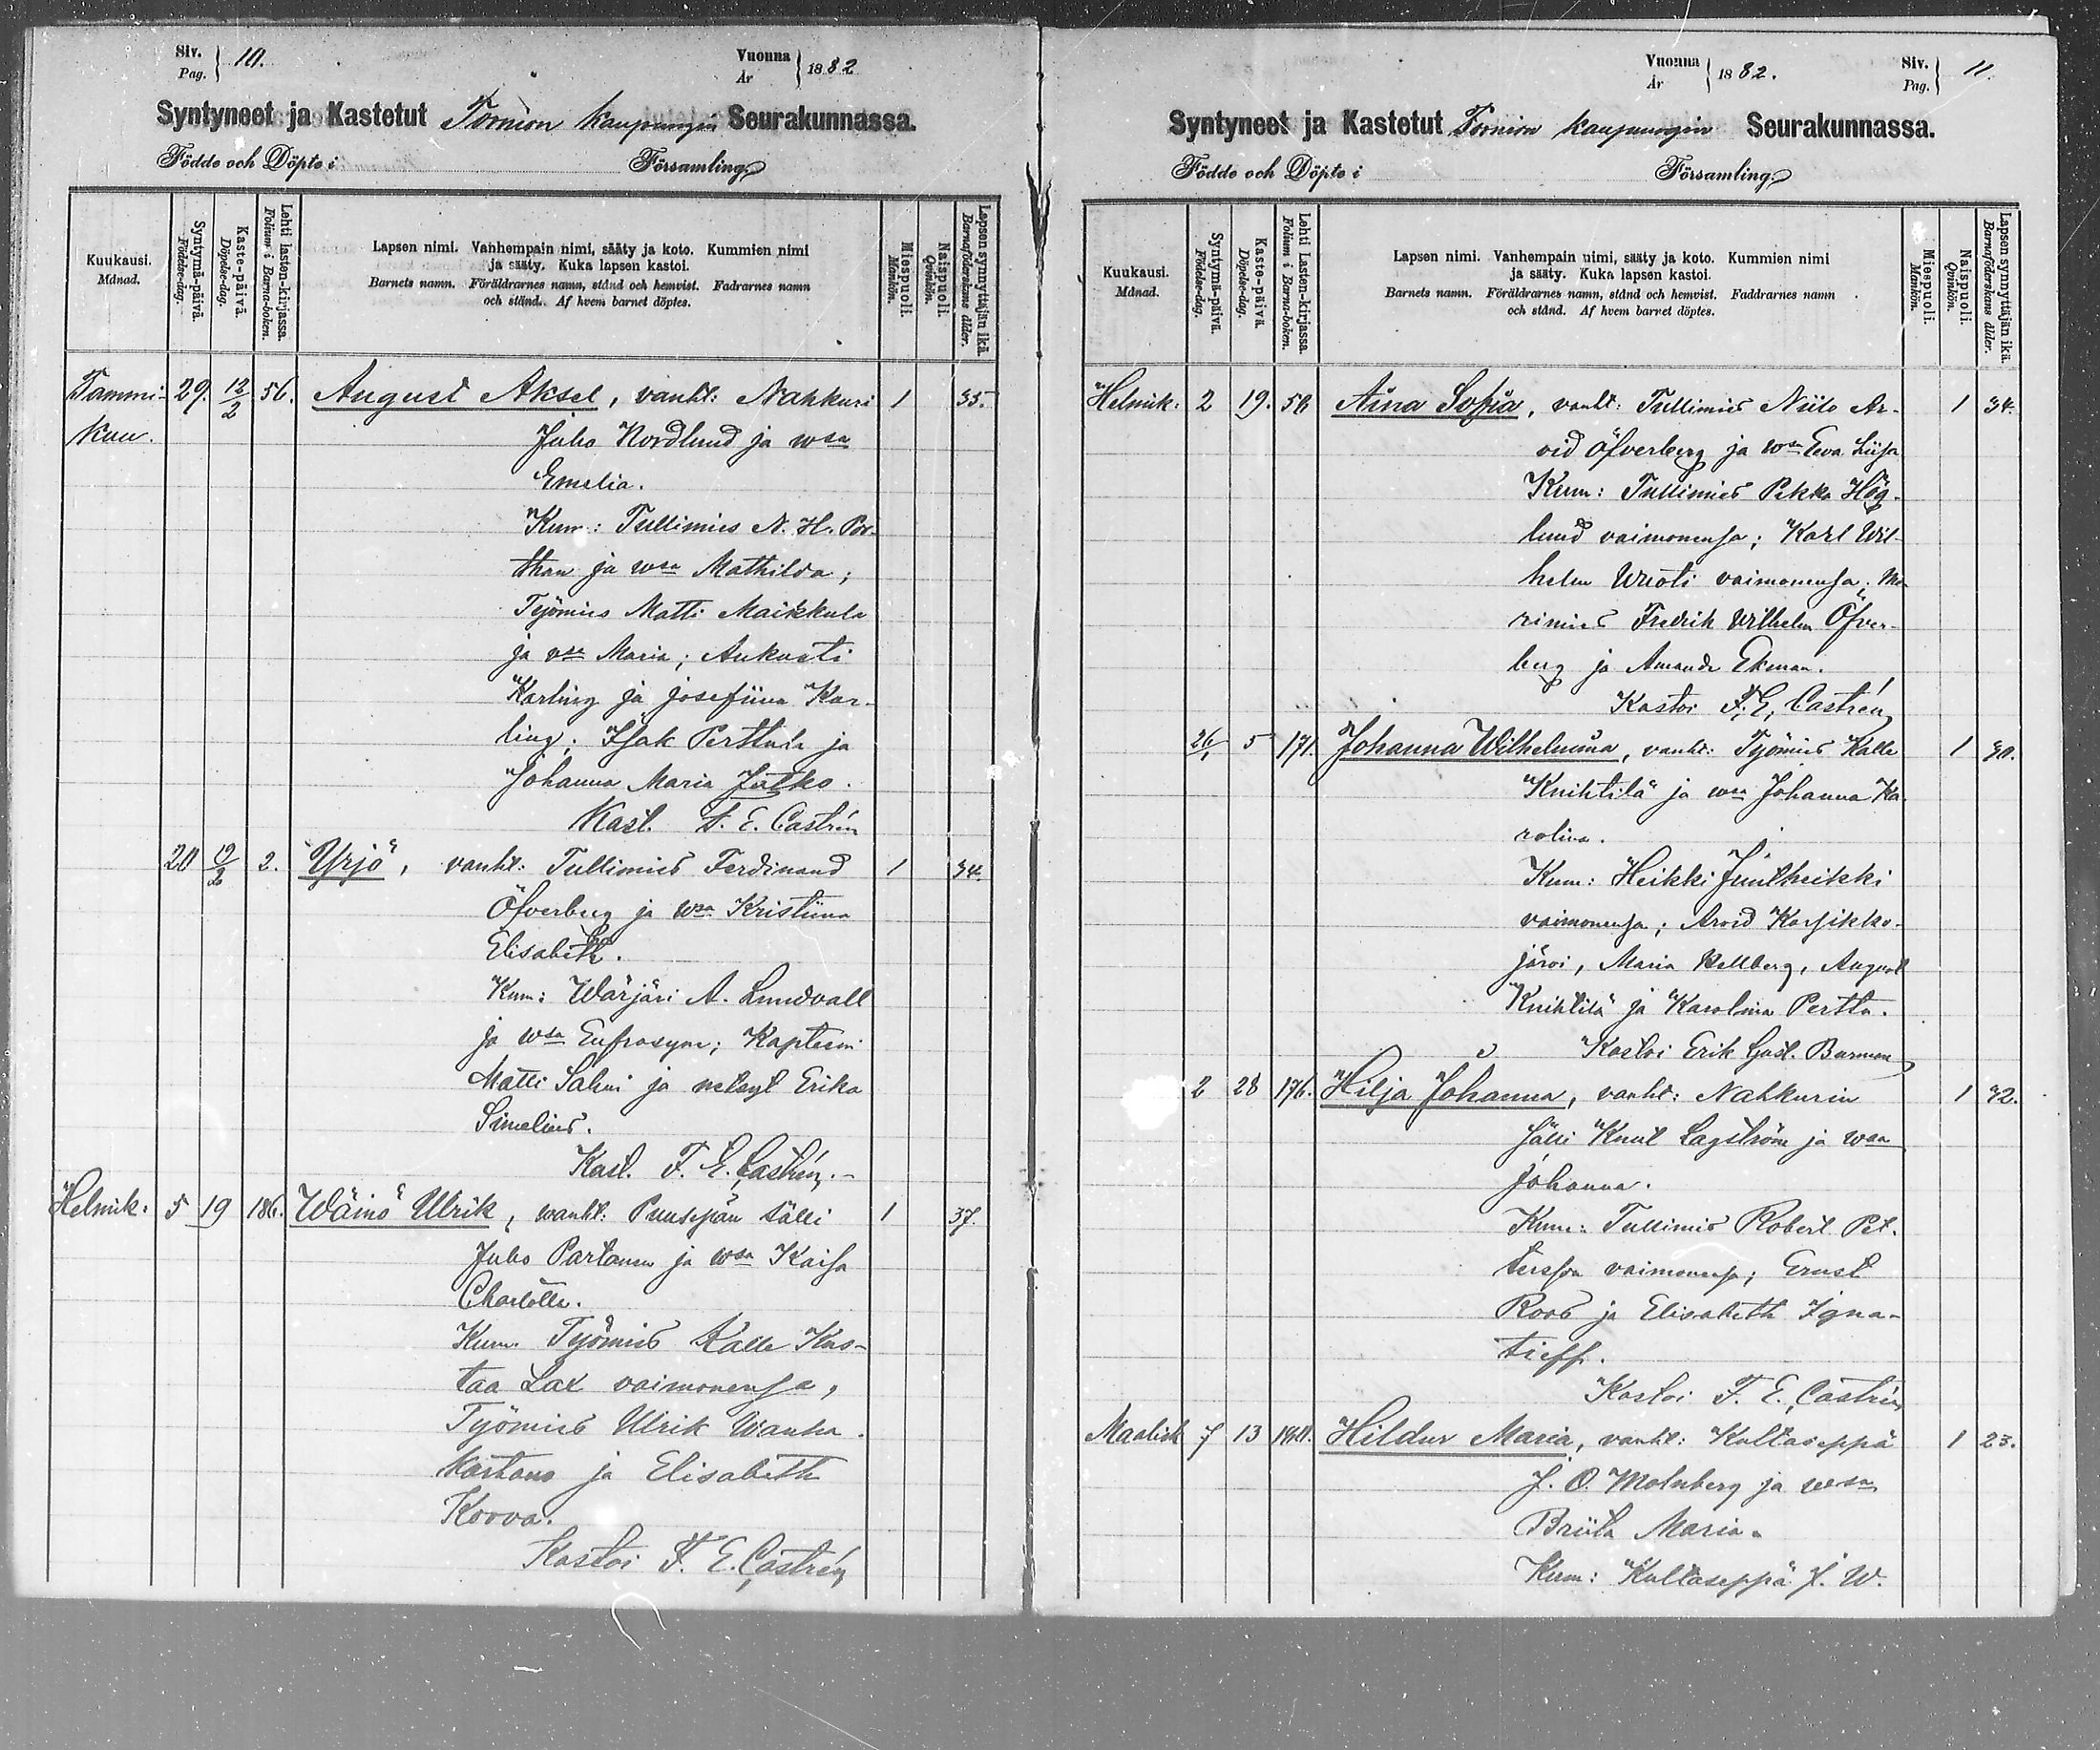 Siv. 10.
Pag.
Vuonna 1882
År
Syntyneet ja Kastetut Tornion kaupungin Seurakunnassa.
Födde och Döpte i Församling.
Kuukausi. Månad.
Syntymä-päivä. Födelse-dag.
Kaste-päivä. Döpelse-dag.
Lehti lasten-kirjassa. Folium i Barna-boken.
Lapsen nimi. Vanhempain nimi, sääty ja koto. Kummien nimi
ja sääty. Kuka lapsen kastoi.
Barnets namn. Föräldrarnes namn, stånd och hemvist. Fadrarnes namn
och stånd. Af hvem barnet döptes.
Miespuoli. Mankön.
Naispuoli. Qvinkön.
Lapsen synnyttäjän ikä. Barnaföderskans ålder.
Tammi- 29. 12/2 56. August Aksel, vanht: Nahkuri 1 35.
kuu. Juho Nordlund ja wsa
Emelia.
Kum: Tullimies N. H. Por-
than ja wsa Mathilda;
Työmies Matti Maikkula
ja vsa Maria; Aukusti
Karling ja Josefiina Kar-
ling; Isak Perttula ja
Johanna Maria Jatko.
Kast. F. E. Castrén
20 12/2 2. Yrjö, vanht: Tullimies Ferdinand 1 34.
Öfverberg ja wsa Kristiina
Elisabeth.
Kum: Wärjäri A. Lundvall
ja wsa Eufrosyne; Kapteeni
Matti Salmi ja Erika
Simelius.
Kast. F. E. Castrén.
Helmik. 5 19 186. Wäinö Ulrik, vanht: Puusepän sälli 1 37.
Juho Partanen ja wsa Kaisa
Charlotte.
Kum. Työmies Kalle Kus-
taa Lax vaimonensa,
Työmies Ulrik Wanha
Kartano ja Elisabeth
Koova.
Kastoi F. E. Castrén
Vuonna 1882.
År
Siv. 11.
Pag.
Syntyneet ja Kastetut Tornion kaupungin Seurakunnassa.
Födde och Döpte i Församling.
Kuukausi. Månad.
Syntymä-päivä. Födelse-dag.
Kaste-päivä. Döpelse-dag.
Lehti Lasten-kirjassa. Folium i Barna-boken.
Lapsen nimi. Vanhempain nimi, sääty ja koto. Kummien nimi
ja sääty. Kuka lapsen kastoi.
Barnets namn. Föräldrarnes namn, stånd och hemvist. Faddrarnes namn
och stånd. Af hvem barnet döptes.
Miespuoli. Mankön.
Naispuoli. Qvinkön.
Lapsen synnyttäjän ikä. Barnaföderskans ålder.
Helmik: 2 19. 56 Aina Sofia, vanht: Tullimies Niilo Ar- 1 34.
vid Öfverberg ja wsa Eeva Liisa
Kum: Tullimies Pekka Hög-
lund vaimonensa; Karl Wil-
helm Wuoti vaimonensa; Me-
rimies Fredrik Wilhelm Öfver-
berg ja Amanda Ekman.
Kastoi F. E. Castrén
26/1 5 171. Johanna Wilhelmiina, vanht: Työmies Kalle 1 30.
Knihtilä ja wsa Johanna Ka-
rolina.
Kum: Heikki Juntheikki
vaimonensa; Arvid Karsikko-
järvi, Maria Kellberg, August
Knihtilä ja Karolina Pertta.
Kastoi Erik Gust. Burman
2 28 176. Hilja Johanna, vanht: Nahkurin 1 32.
sälli Knut Lagström ja wsa
Johanna.
Kum: Tullimies Robert Pet-
tersson vaimonensa; Ernst
Roos ja Elisabeth Igna-
tieff.
Kastoi F. E. Castrén
Maalisk 7 13 Hildur Maria, vanht: Kultaseppä 1 23.
J. O. Molnberg ja wsa
Briita Maria.
Kum: Kultaseppä J. W.